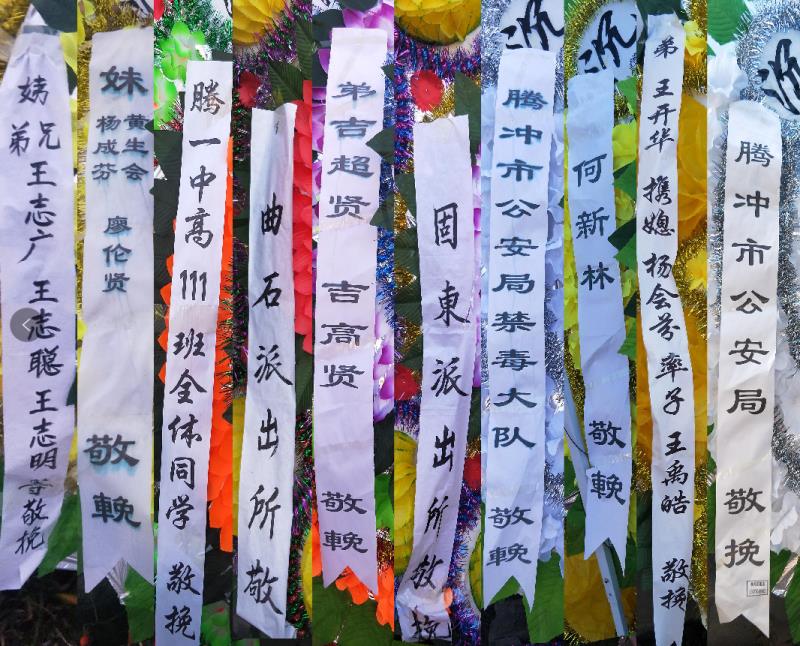 姨兄弟 王志广 王志聪 王志明等敬挽
妹 黄生会 杨成芬 廖伦贤 敬輓
腾一中高111班全体同学 敬挽
曲石派出所敬
弟 吉超贤 吉高贤 敬輓
固東派出所敬挽
沉
腾冲市公安局禁毒大队 敬輓
沉
何新林 敬輓
弟 王开华 携媳 杨会芬 率子 王禹皓 敬挽
沉
腾冲市公安局 敬挽